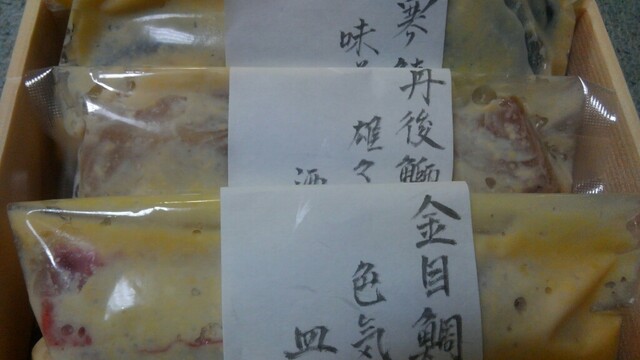 寒
味
丹後鰤
雄々
酒
金目鯛
色気
皿